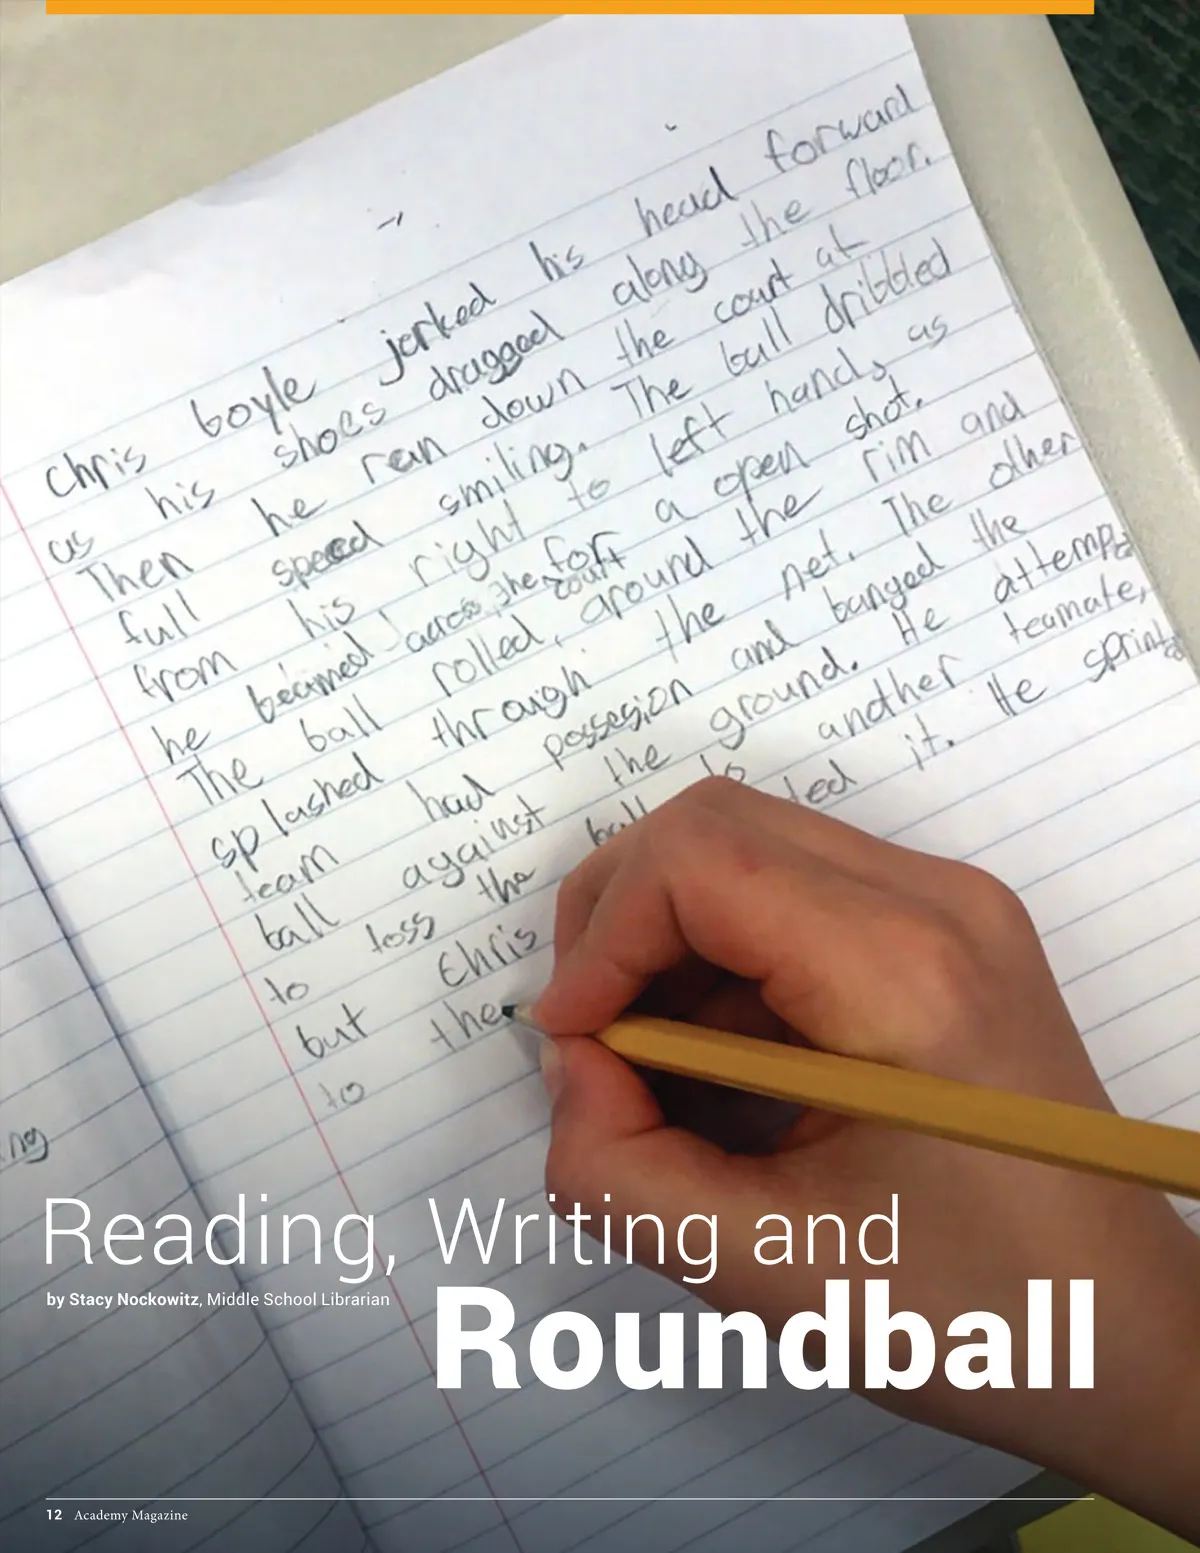 Chris boyle jerked his head forward
as his shoes dragged along the floor.
Then he ran down the court at
full speed smiling. The ball dribbled
from his right to left hand, as
he beamed across the court for a open shot.
The ball rolled, around the rim and
splashed through the net. The other
team had possesion and banged the
ball against the ground. He attempted
to toss the ball to another teamate,
but Chris ted it. He sprinted
to the
ng
Reading, Writing and
by Stacy Nockowitz, Middle School Librarian
Roundball
12 Academy Magazine